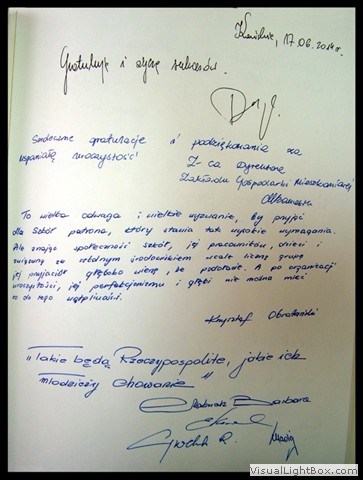 17.06.2014 r.
Gratuluję i życzę sukcesów.
Serdeczne gratulacje i podziękowania za
wspaniałą uroczystość!
Z-ca Dyrektora
Zakładu Gospodarki Mieszkaniowej
To wielka odwaga i wielkie wyzwanie, by przyjąć
dla szkół patrona, który stawia tak wysokie wymagania.
Ale znając społeczność szkół, jej pracowników, dzieci i
związaną ze szkolnym środowiskiem wcale liczną grupę
jej przyjaciół głęboko wierzę, że podołacie. A po organizacji
uroczystości, jej perfekcjonizmu i głębi nie można mieć
co do tego wątpliwości.
Krzysztof
"Takie będą Rzeczypospolite, jakie ich
młodzieży chowanie"
Barbara
VisualLightBox.com